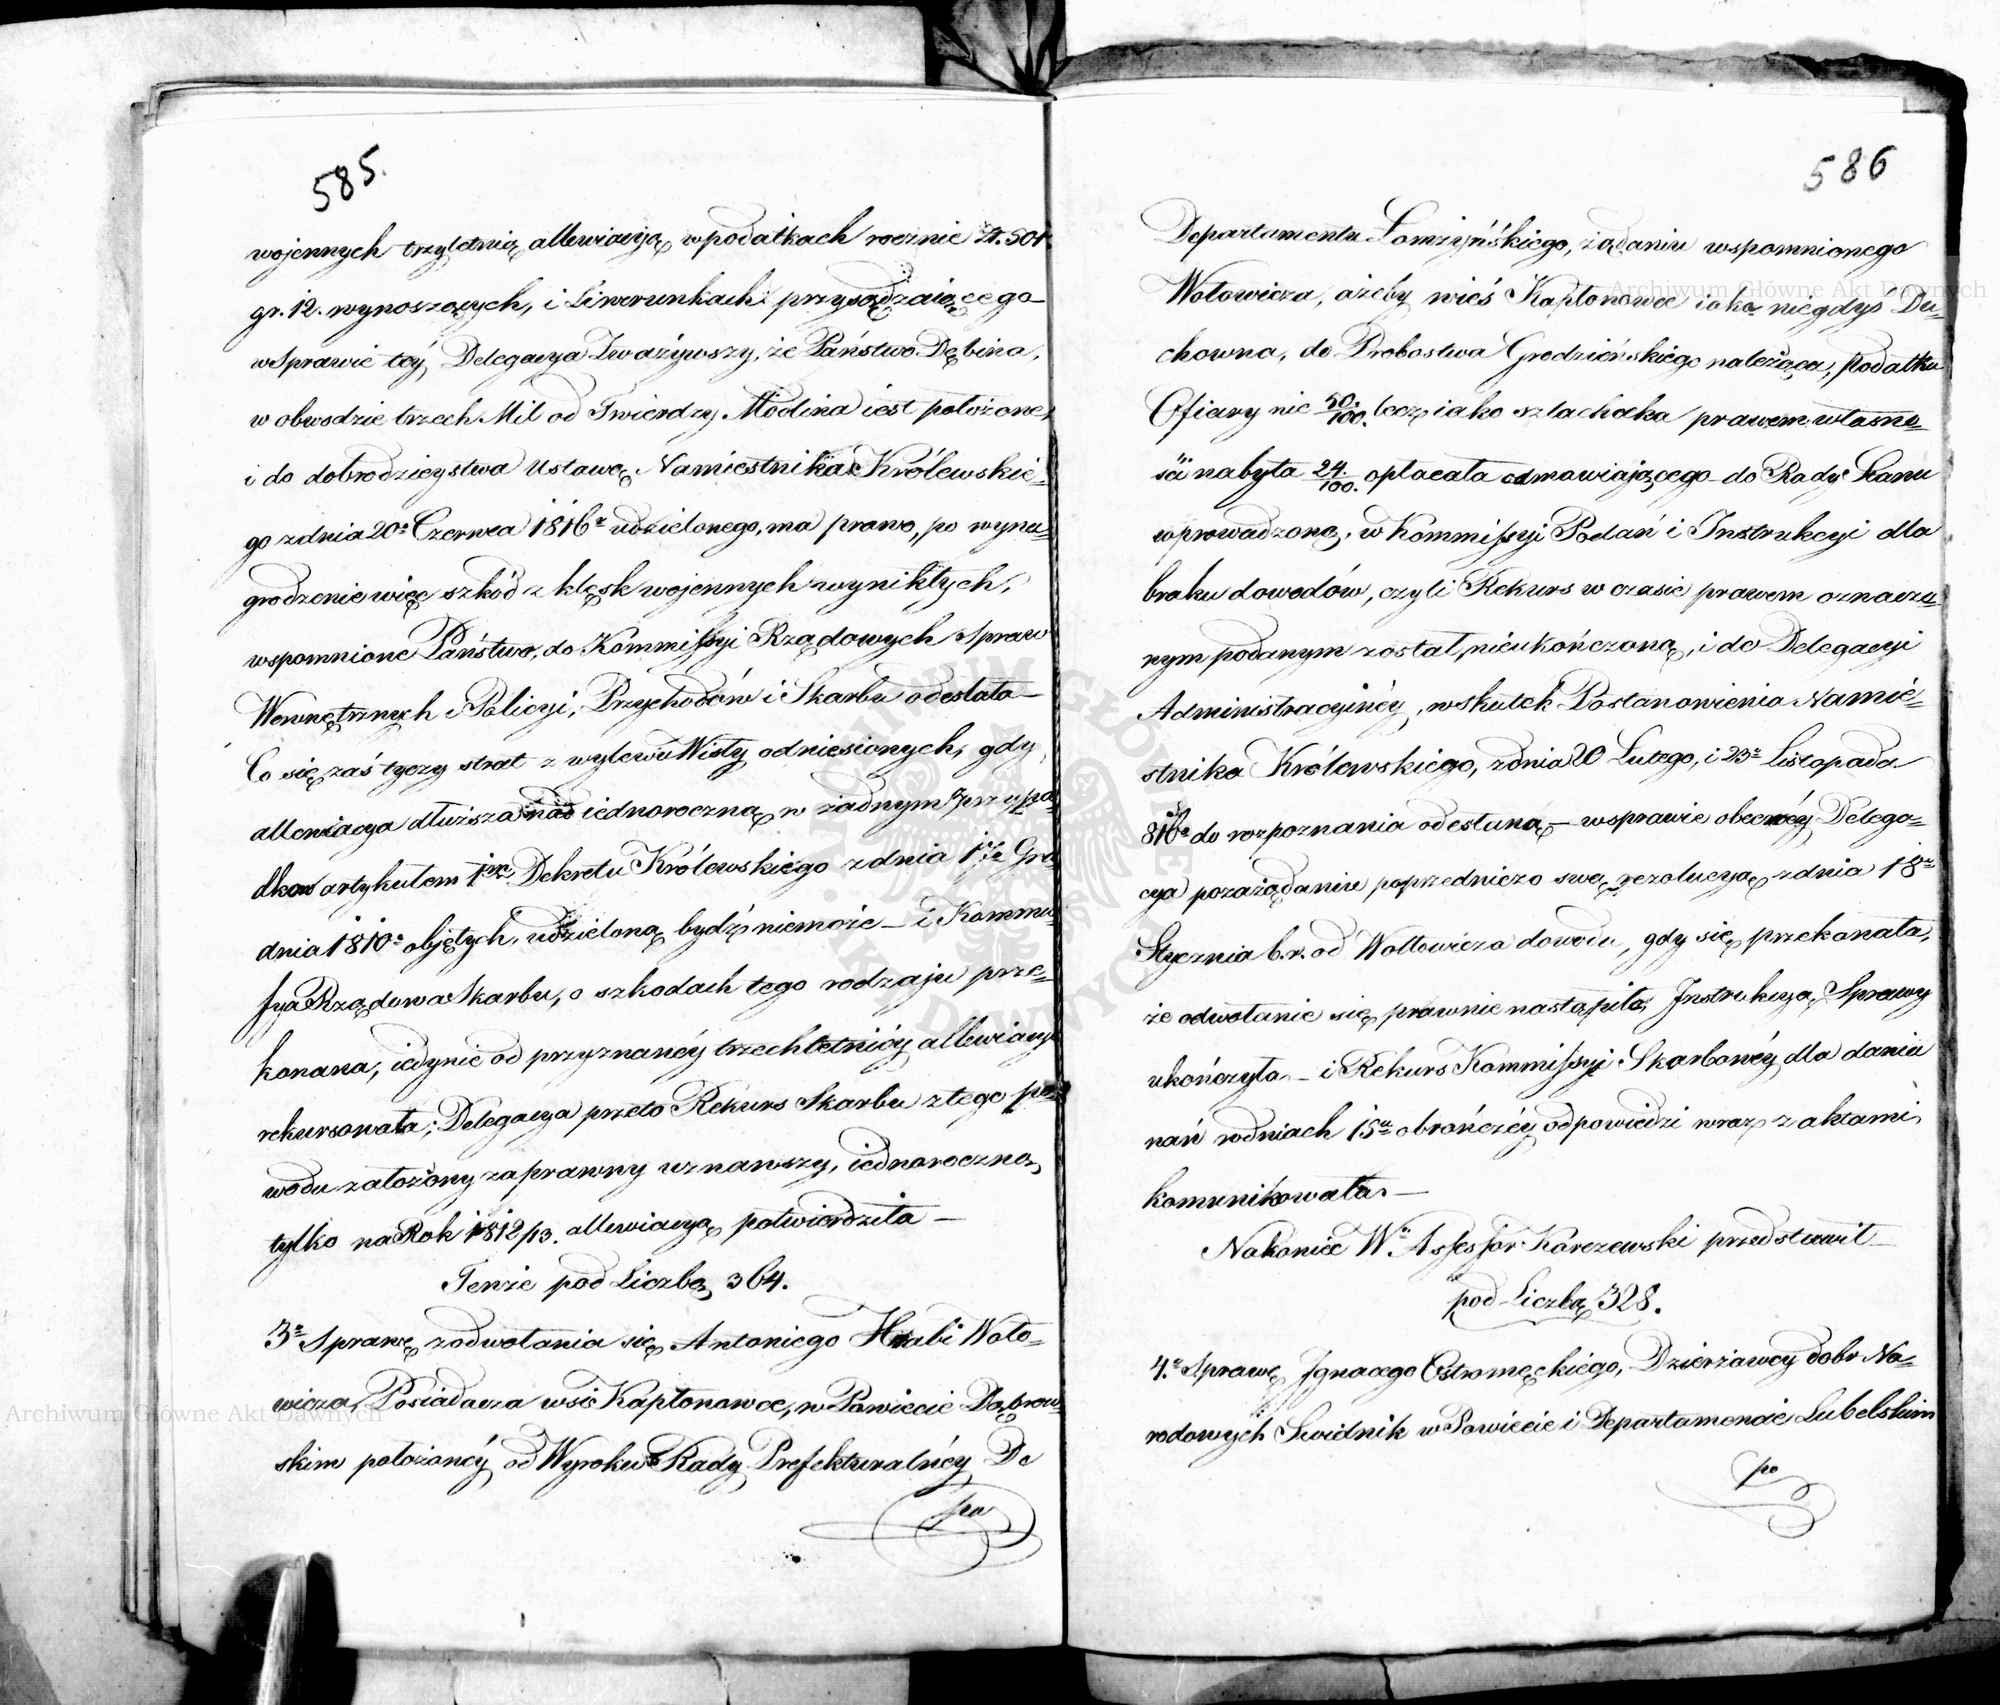 585.
wojennych trzyletnią allewiacyją w podatkach rocznie Zł. 504
gr. 12. wynoszących, i Liwerunkach przysądzaiącego
w Sprawie téy, Delegacya Zważywszy, że Państwo Dębina,
w obwodzie trzech Mil od Twierdzy Modlina iest położone,
i do dobrodzieystwa Ustawą Namiestnika Królewskie-
go z dnia 20º Czerwca 1816º udzielonego, ma prawo, po wyna-
grodzenie więc szkód z klęsk wojennych wynikłych,
wspomnione Państwo, do Kommissyi Rządowych Spraw
Wewnętrznych i Policyi, Przychodów i Skarbu odesłała—
Co się zaś tyczy strat z wylewu Wisły odniesionych, gdy
allewiacya dłuższa nad iednoroczną w żadnym przypa-
dkow artykułem 1ym Dekretu Królewskiego z dnia 1go Gru-
dnia 1810º objętych, udzieloną bydź niemoże — i Kommi-
ssya Rządowa Skarbu, o szkodach tego rodzaju prze-
konana, iedynie od przyznanéy trzechletniéy allewiacyi
rekursowała; Delegacya przeto Rekurs Skarbu z tego po-
wodu założony za prawny uznawszy, iednoroczną
tylko na Rok 1812/13. allewiacyą potwierdziła —
Tenże pod Liczbą 364.
3º Sprawę z odwołania się Antoniego Hrabi Woło-
wicza, Posiadacza wsi Kapłonowce, w Powiecie Dąbrow-
skim położonéy od Wyroku Rady Prefekturalnéy De
pa
586
Departamentu Łomżyńskiego, żądaniu wspomnionego
Wołowicza, ażeby wieś Kapłonowce iako niegdyś Du-
chowna, do Probostwa Grodzieńskiego należąca, podatku
Ofiary nie 50/100. lecz iako szlachecka prawem własno-
ści nabyta 24/100. opłacała odmawiającego do Rady Stanu
wprowadzoną, w Kommissyi Podań i Instrukcyi dla
braku dowodów, czyli Rekurs w czasie prawem oznaczo-
nym podanym został, nieukończoną, i do Delegacyi
Administracyinéy, w skutek Postanowienia Namie-
stnika Królewskiego, z dnia 20 Lutego, i 23º Listopada
1816º do rozpoznania odesłaną — w sprawie obecnéy Delega-
cya po zażądaniu poprzedniczo swą rezolucyą z dnia 18º
Stycznia b.r. od Wołłowicza dowodu, gdy się przekonała,
że odwołanie się prawnie nastąpiło, Instrukcyą Sprawy
ukończyła — i Rekurs Kommissyi Skarbowéy dla dania
nań w dniach 15tu obrończéy odpowiedzi wraz z aktami
komunikowała. —
Nakoniec W. Assessor Karczewski przedstawił
pod Liczbą 328.
4º Sprawę Ignacego Ostromęckiego, Dzierżawcy dobr Na-
rodowych Swidnik w Powiecie i Departamencie Lubelskim
po
Archiwum Główne Akt Dawnych
Archiwum Główne Akt Dawnych
ARCHIWUM GŁÓWNE AKT DAWNYCH